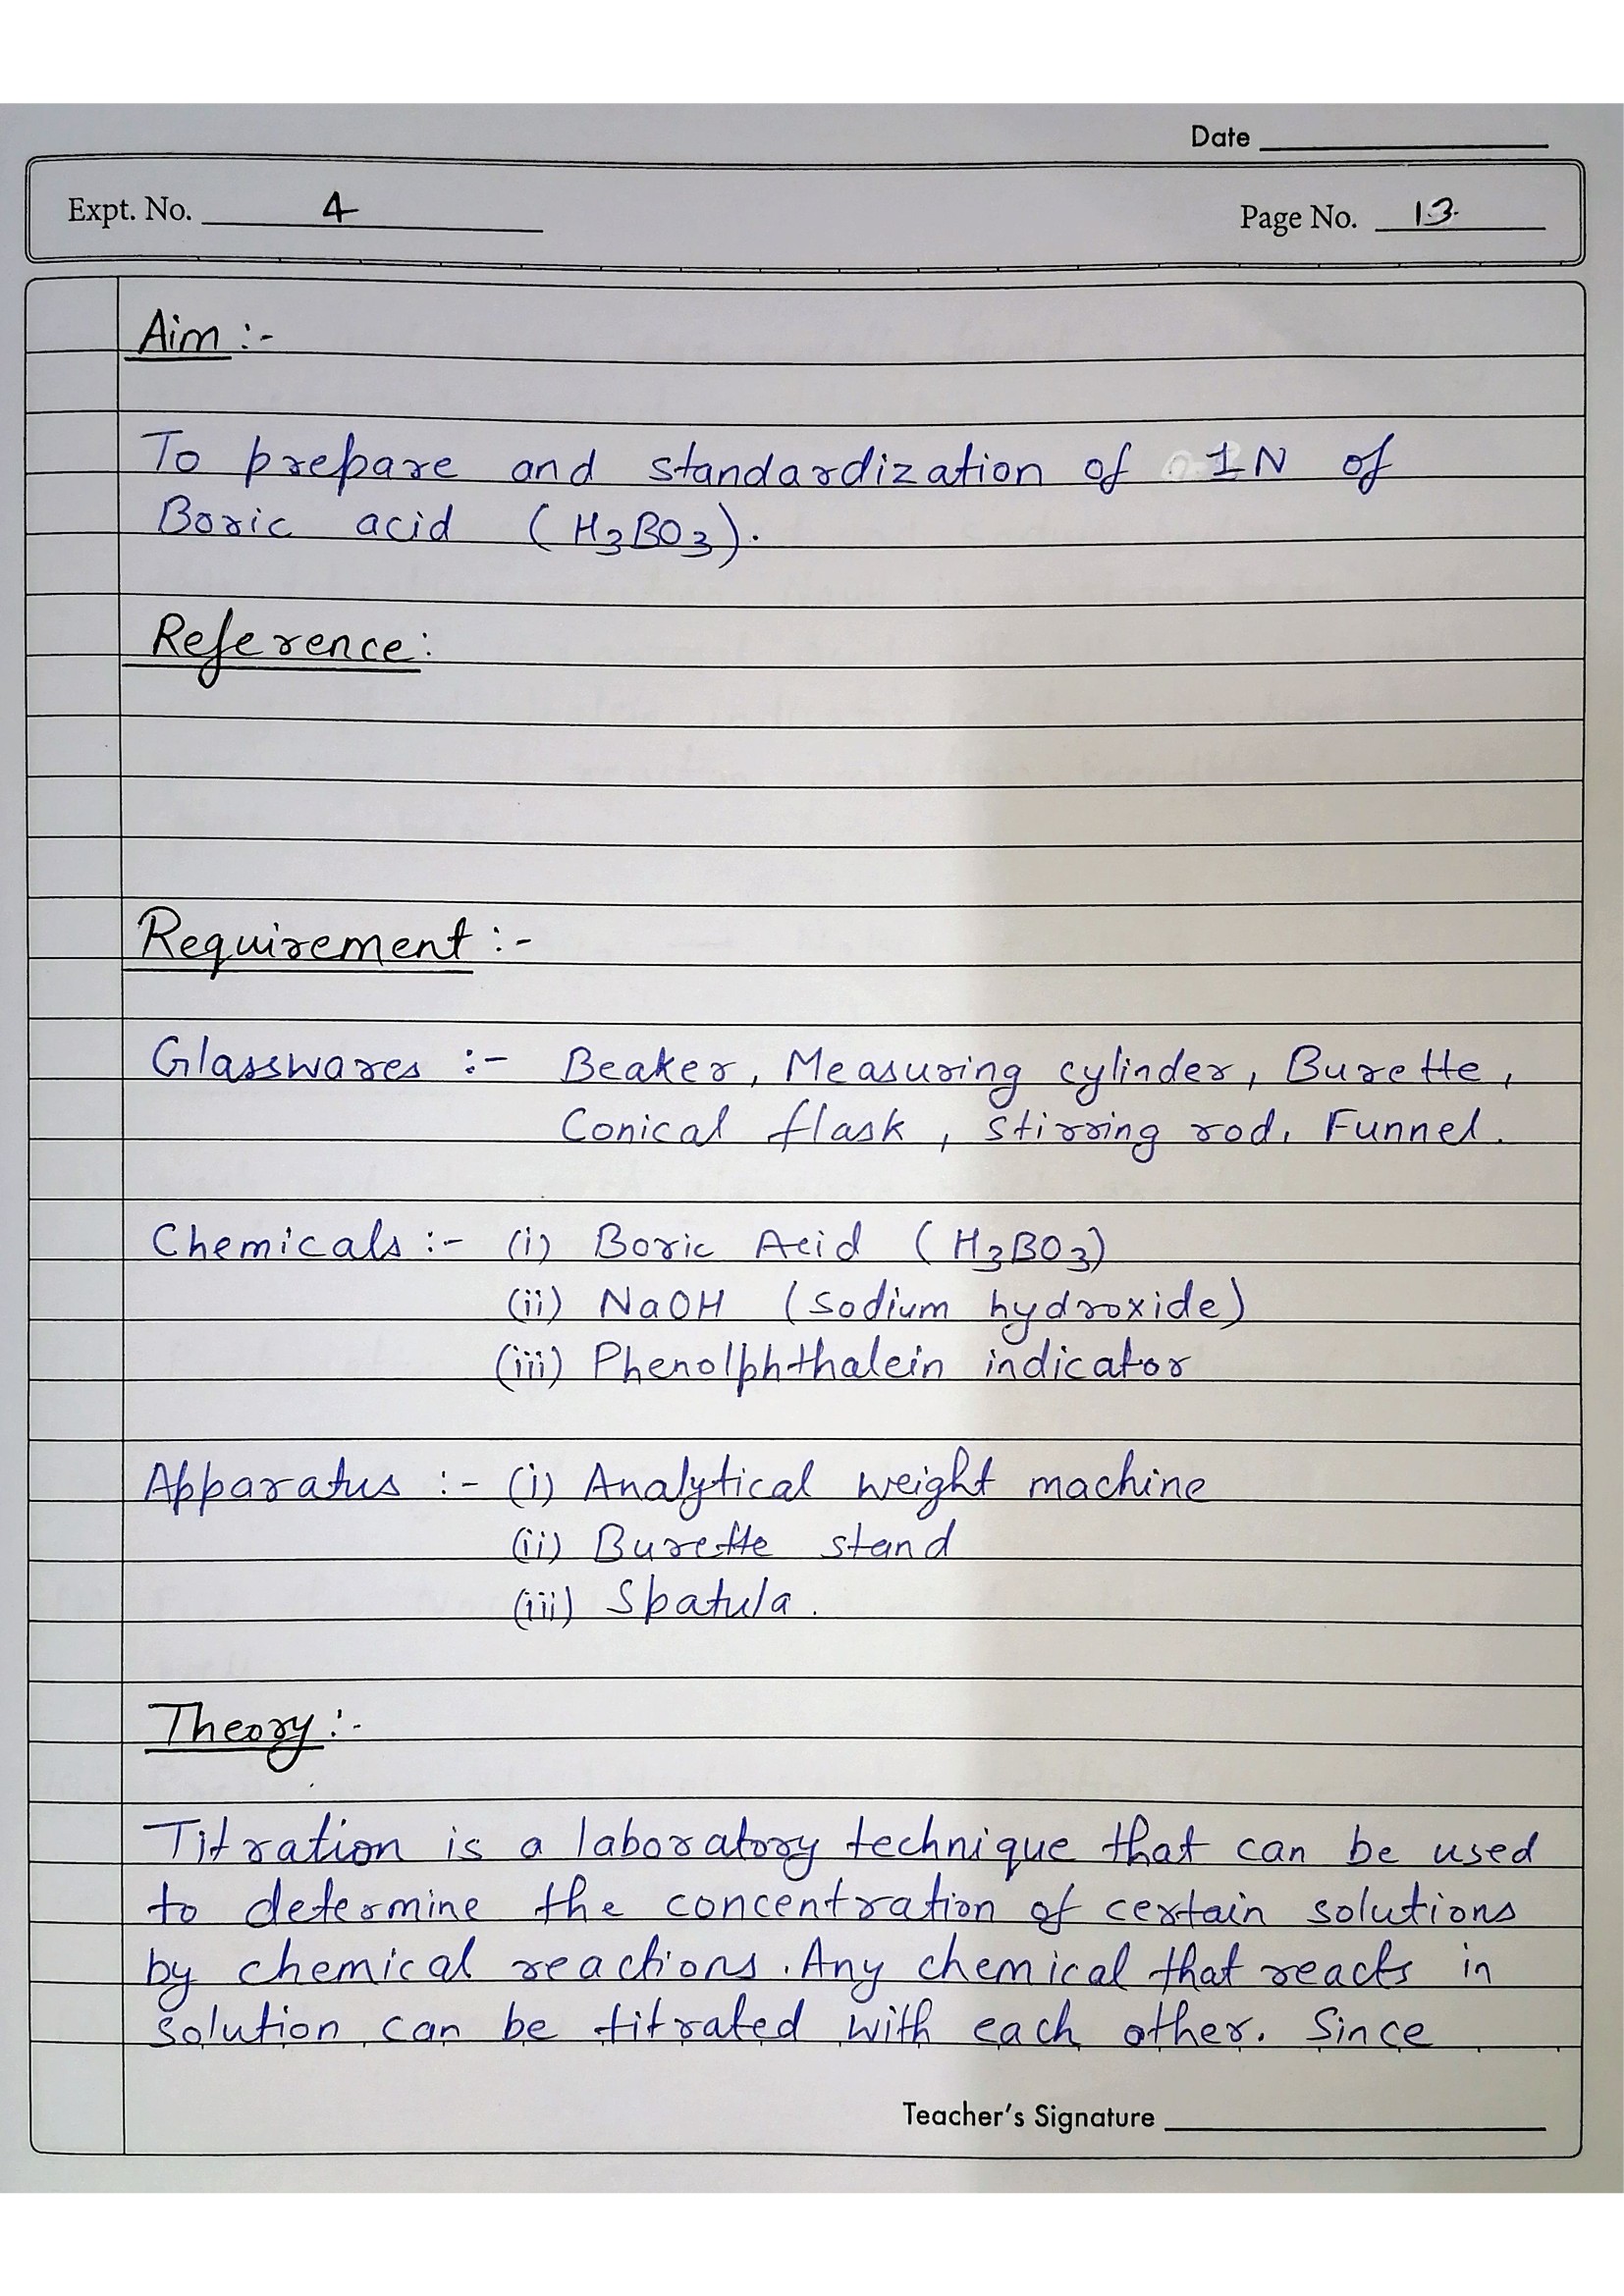 Date
Expt. No. 4
Page No. 13
Aim :-
To prepare and standardization of 1N of
Boric acid (H3BO3).
Reference:
Requirement :-
Glasswares :- Beaker, Measuring cylinder, Burette,
Conical flask, Stirring rod, Funnel.
Chemicals :- (i) Boric Acid (H3BO3)
(ii) NaOH (Sodium hydroxide)
(iii) Phenolphthalein indicator
Apparatus :- (i) Analytical weight machine
(ii) Burette stand
(iii) Spatula.
Theory :-
Titration is a laboratory technique that can be used
to determine the concentration of certain solutions
by chemical reactions. Any chemical that reacts in
solution can be titrated with each other. Since
Teacher's Signature